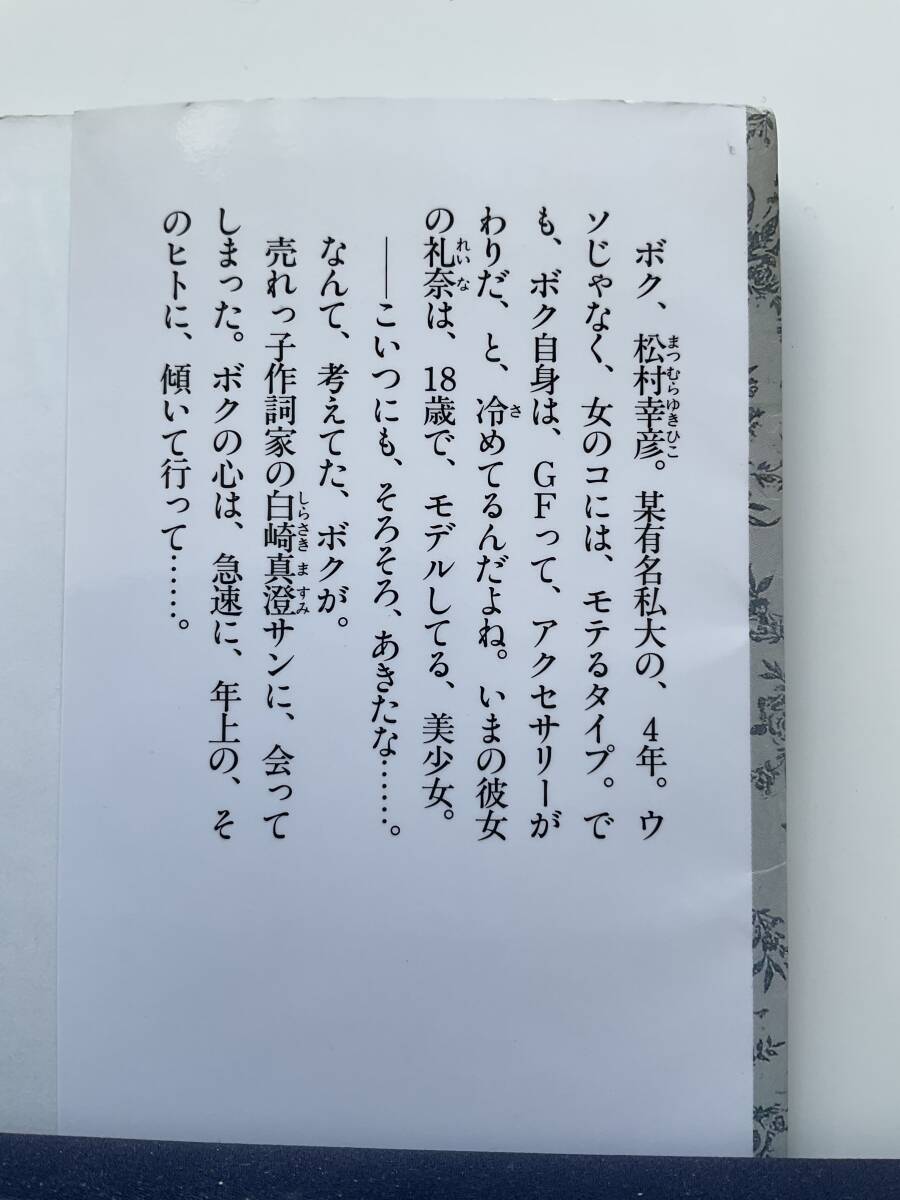 ボク、松村幸彦。某有名私大の、4年。ウ
ソじゃなく、女のコには、モテるタイプ。で
も、ボク自身は、GFって、アクセサリーが
わりだ、と、冷めてるんだよね。いまの彼女
の礼奈は、18歳で、モデルしてる、美少女。
――こいつにも、そろそろ、あきたな……。
なんて、考えてた、ボクが。
売れっ子作詞家の白崎真澄サンに、会って
しまった。ボクの心は、急速に、年上の、そ
のヒトに、傾いて行って……。